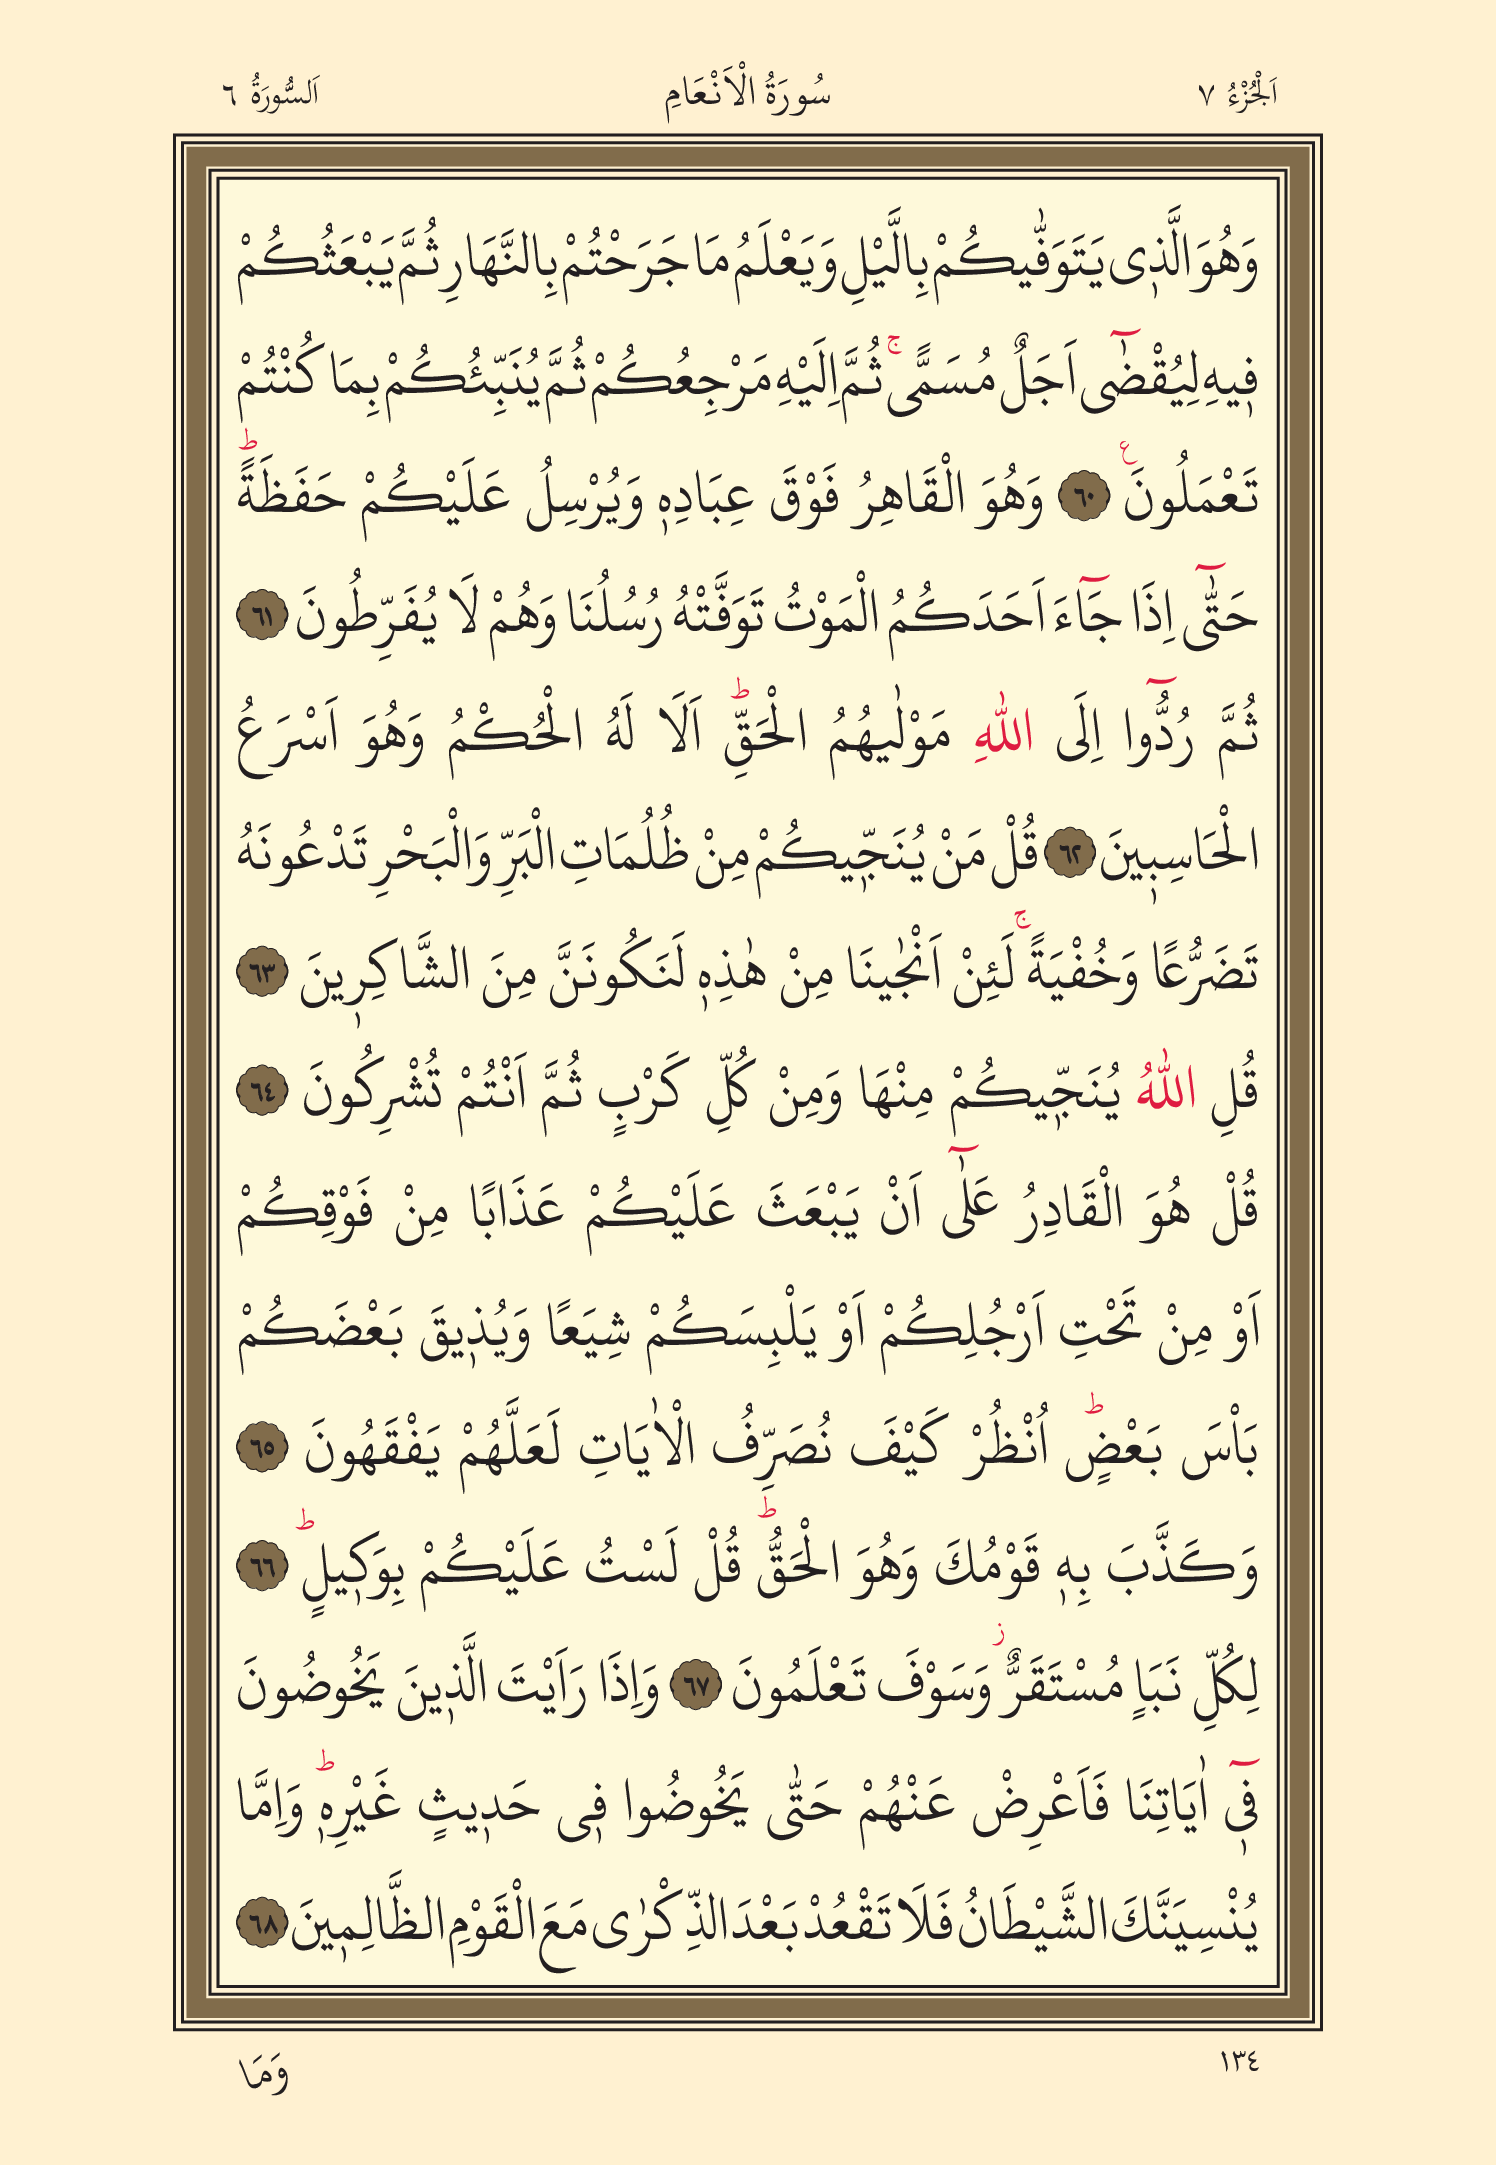 اَلْجُزْءُ ٧
سُورَةُ الْاَنْعَامِ
اَلسُّورَةُ ٦
وَهُوَ الَّذ۪ى يَتَوَفّٰيكُمْ بِالَّيْلِ وَيَعْلَمُ مَا جَرَحْتُمْ بِالنَّهَارِ ثُمَّ يَبْعَثُكُمْ
ف۪يهِ لِيُقْضٰٓى اَجَلٌ مُسَمًّىۚ ثُمَّ اِلَيْهِ مَرْجِعُكُمْ ثُمَّ يُنَبِّئُكُمْ بِمَا كُنْتُمْ
تَعْمَلُونَ ع ٦٠ وَهُوَ الْقَاهِرُ فَوْقَ عِبَادِه۪ وَيُرْسِلُ عَلَيْكُمْ حَفَظَةًۜ
حَتّٰٓى اِذَا جَٓاءَ اَحَدَكُمُ الْمَوْتُ تَوَفَّتْهُ رُسُلُنَا وَهُمْ لَا يُفَرِّطُونَ ٦١
ثُمَّ رُدُّٓوا اِلَى اللّٰهِ مَوْلٰيهُمُ الْحَقِّۜ اَلَا لَهُ الْحُكْمُ وَهُوَ اَسْرَعُ
الْحَاسِب۪ينَ ٦٢ قُلْ مَنْ يُنَجّ۪يكُمْ مِنْ ظُلُمَاتِ الْبَرِّ وَالْبَحْرِ تَدْعُونَهُ
تَضَرُّعًا وَخُفْيَةًۚ لَئِنْ اَنْجٰينَا مِنْ هٰذِه۪ لَنَكُونَنَّ مِنَ الشَّاكِر۪ينَ ٦٣
قُلِ اللّٰهُ يُنَجّ۪يكُمْ مِنْهَا وَمِنْ كُلِّ كَرْبٍ ثُمَّ اَنْتُمْ تُشْرِكُونَ ٦٤
قُلْ هُوَ الْقَادِرُ عَلٰٓى اَنْ يَبْعَثَ عَلَيْكُمْ عَذَابًا مِنْ فَوْقِكُمْ
اَوْ مِنْ تَحْتِ اَرْجُلِكُمْ اَوْ يَلْبِسَكُمْ شِيَعًا وَيُذ۪يقَ بَعْضَكُمْ
بَاْسَ بَعْضٍۜ اُنْظُرْ كَيْفَ نُصَرِّفُ الْاٰيَاتِ لَعَلَّهُمْ يَفْقَهُونَ ٦٥
وَكَذَّبَ بِه۪ قَوْمُكَ وَهُوَ الْحَقُّۜ قُلْ لَسْتُ عَلَيْكُمْ بِوَك۪يلٍۜ ٦٦
لِكُلِّ نَبَاٍ مُسْتَقَرٌّۘ وَسَوْفَ تَعْلَمُونَ ٦٧ وَاِذَا رَاَيْتَ الَّذ۪ينَ يَخُوضُونَ
ف۪ٓى اٰيَاتِنَا فَاَعْرِضْ عَنْهُمْ حَتّٰى يَخُوضُوا ف۪ى حَد۪يثٍ غَيْرِه۪ۜ وَاِمَّا
يُنْسِيَنَّكَ الشَّيْطَانُ فَلَا تَقْعُدْ بَعْدَ الذِّكْرٰى مَعَ الْقَوْمِ الظَّالِم۪ينَ ٦٨
١٣٤
وَمَا